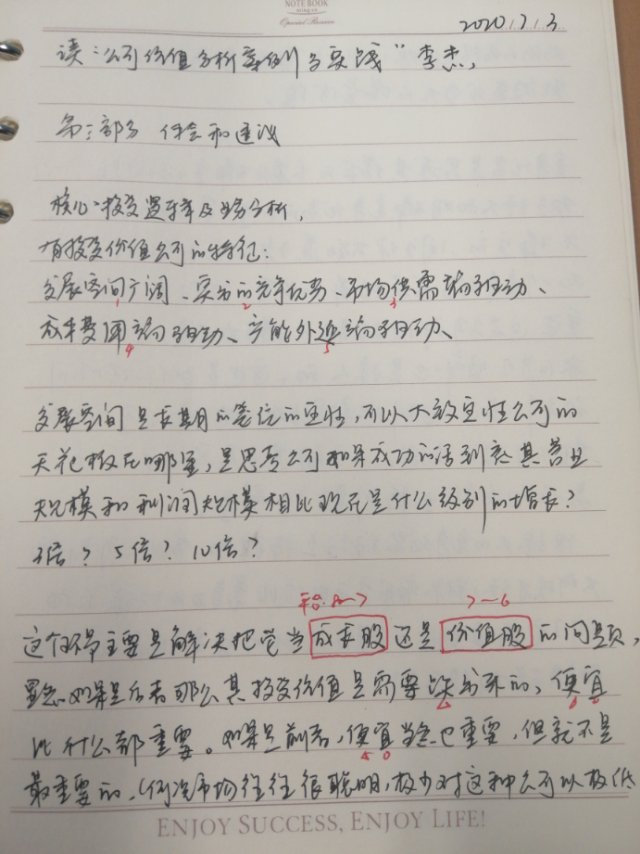 NOTE BOOK
Special Person
2020.7.3
读:"公司价值分析案例与实践" 李杰,
第三部分 体会和建议
核心:投资逻辑及趋势分析,
有投资价值公司的特征:
发展空间广阔、突出的竞争优势、市场供需驱动、
1 2 3
成本费用驱动、产能外延驱动、
4 5
发展空间是长期的定位的定性,可以大致定性公司的
天花板在哪里,是思考公司如果成功的话到底其营业
规模和利润规模相比现在是什么级别的增长?
3倍?5倍?10倍?
这个环节主要是解决把它当成长股还是价值股的问题,
显然如果是后者那么其投资价值是需要跌出来的,便宜
比什么都重要。如果是前者,便宜当然也重要,但就不是
最重要的,(何况市场往往很聪明,极少对这种公司以极低
ENJOY SUCCESS, ENJOY LIFE!